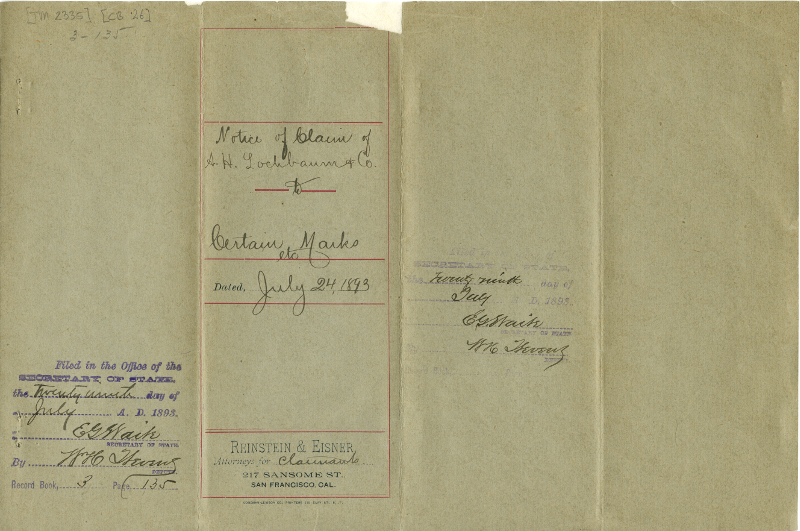 [TM 2335] [CB 26]
3-135
Notice of Claim of
A. H. Lochbaum & Co.
to
Certain Marks
etc
Dated, July 24, 1893
Filed in the Office of the
SECRETARY OF STATE,
the Twenty ninth day of
July A. D. 1893.
E G Waite
SECRETARY OF STATE
By W H
DEPUTY.
Record Book, 3 Page 135
REINSTEIN & EISNER,
Attorneys for Claimants
217 SANSOME ST.,
SAN FRANCISCO, CAL.
SECRETARY OF STATE,
the Twenty ninth day of
July A. D. 1893.
E G Waite
SECRETARY OF STATE
W H
DEPUTY.